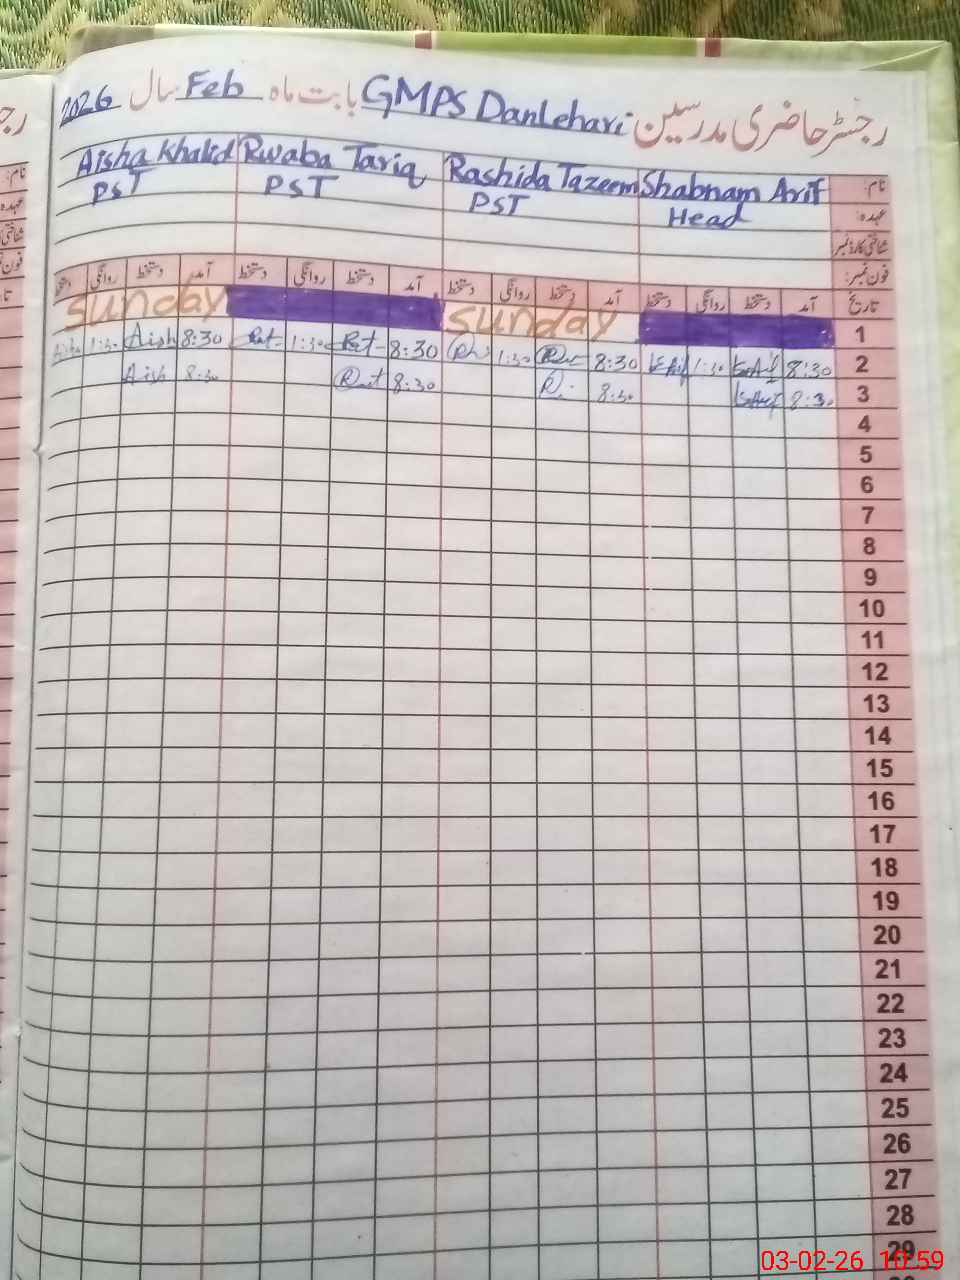 رجسٹر حاضری مدرسین GMPS Danlehari بابت ماہ Feb سال 2026
نام: Shabnam Arif Rashida Tazeem Rwaba Tariq Aisha Khalid
عہدہ: Head PST PST PST
شناختی کارڈ نمبر
فون نمبر:
تاریخ آمد دستخط روانگی دستخط آمد دستخط روانگی دستخط آمد دستخط روانگی دستخط آمد دستخط روانگی دستخط
1 Sunday Sunday
2 8:30 1:30 8:30 1:30 8:30 1:30 8:30 Aish 1:30
3 8:30 8:30 8:30 8:30 Aish
4
5
6
7
8
9
10
11
12
13
14
15
16
17
18
19
20
21
22
23
24
25
26
27
28
29
03-02-26 10:59